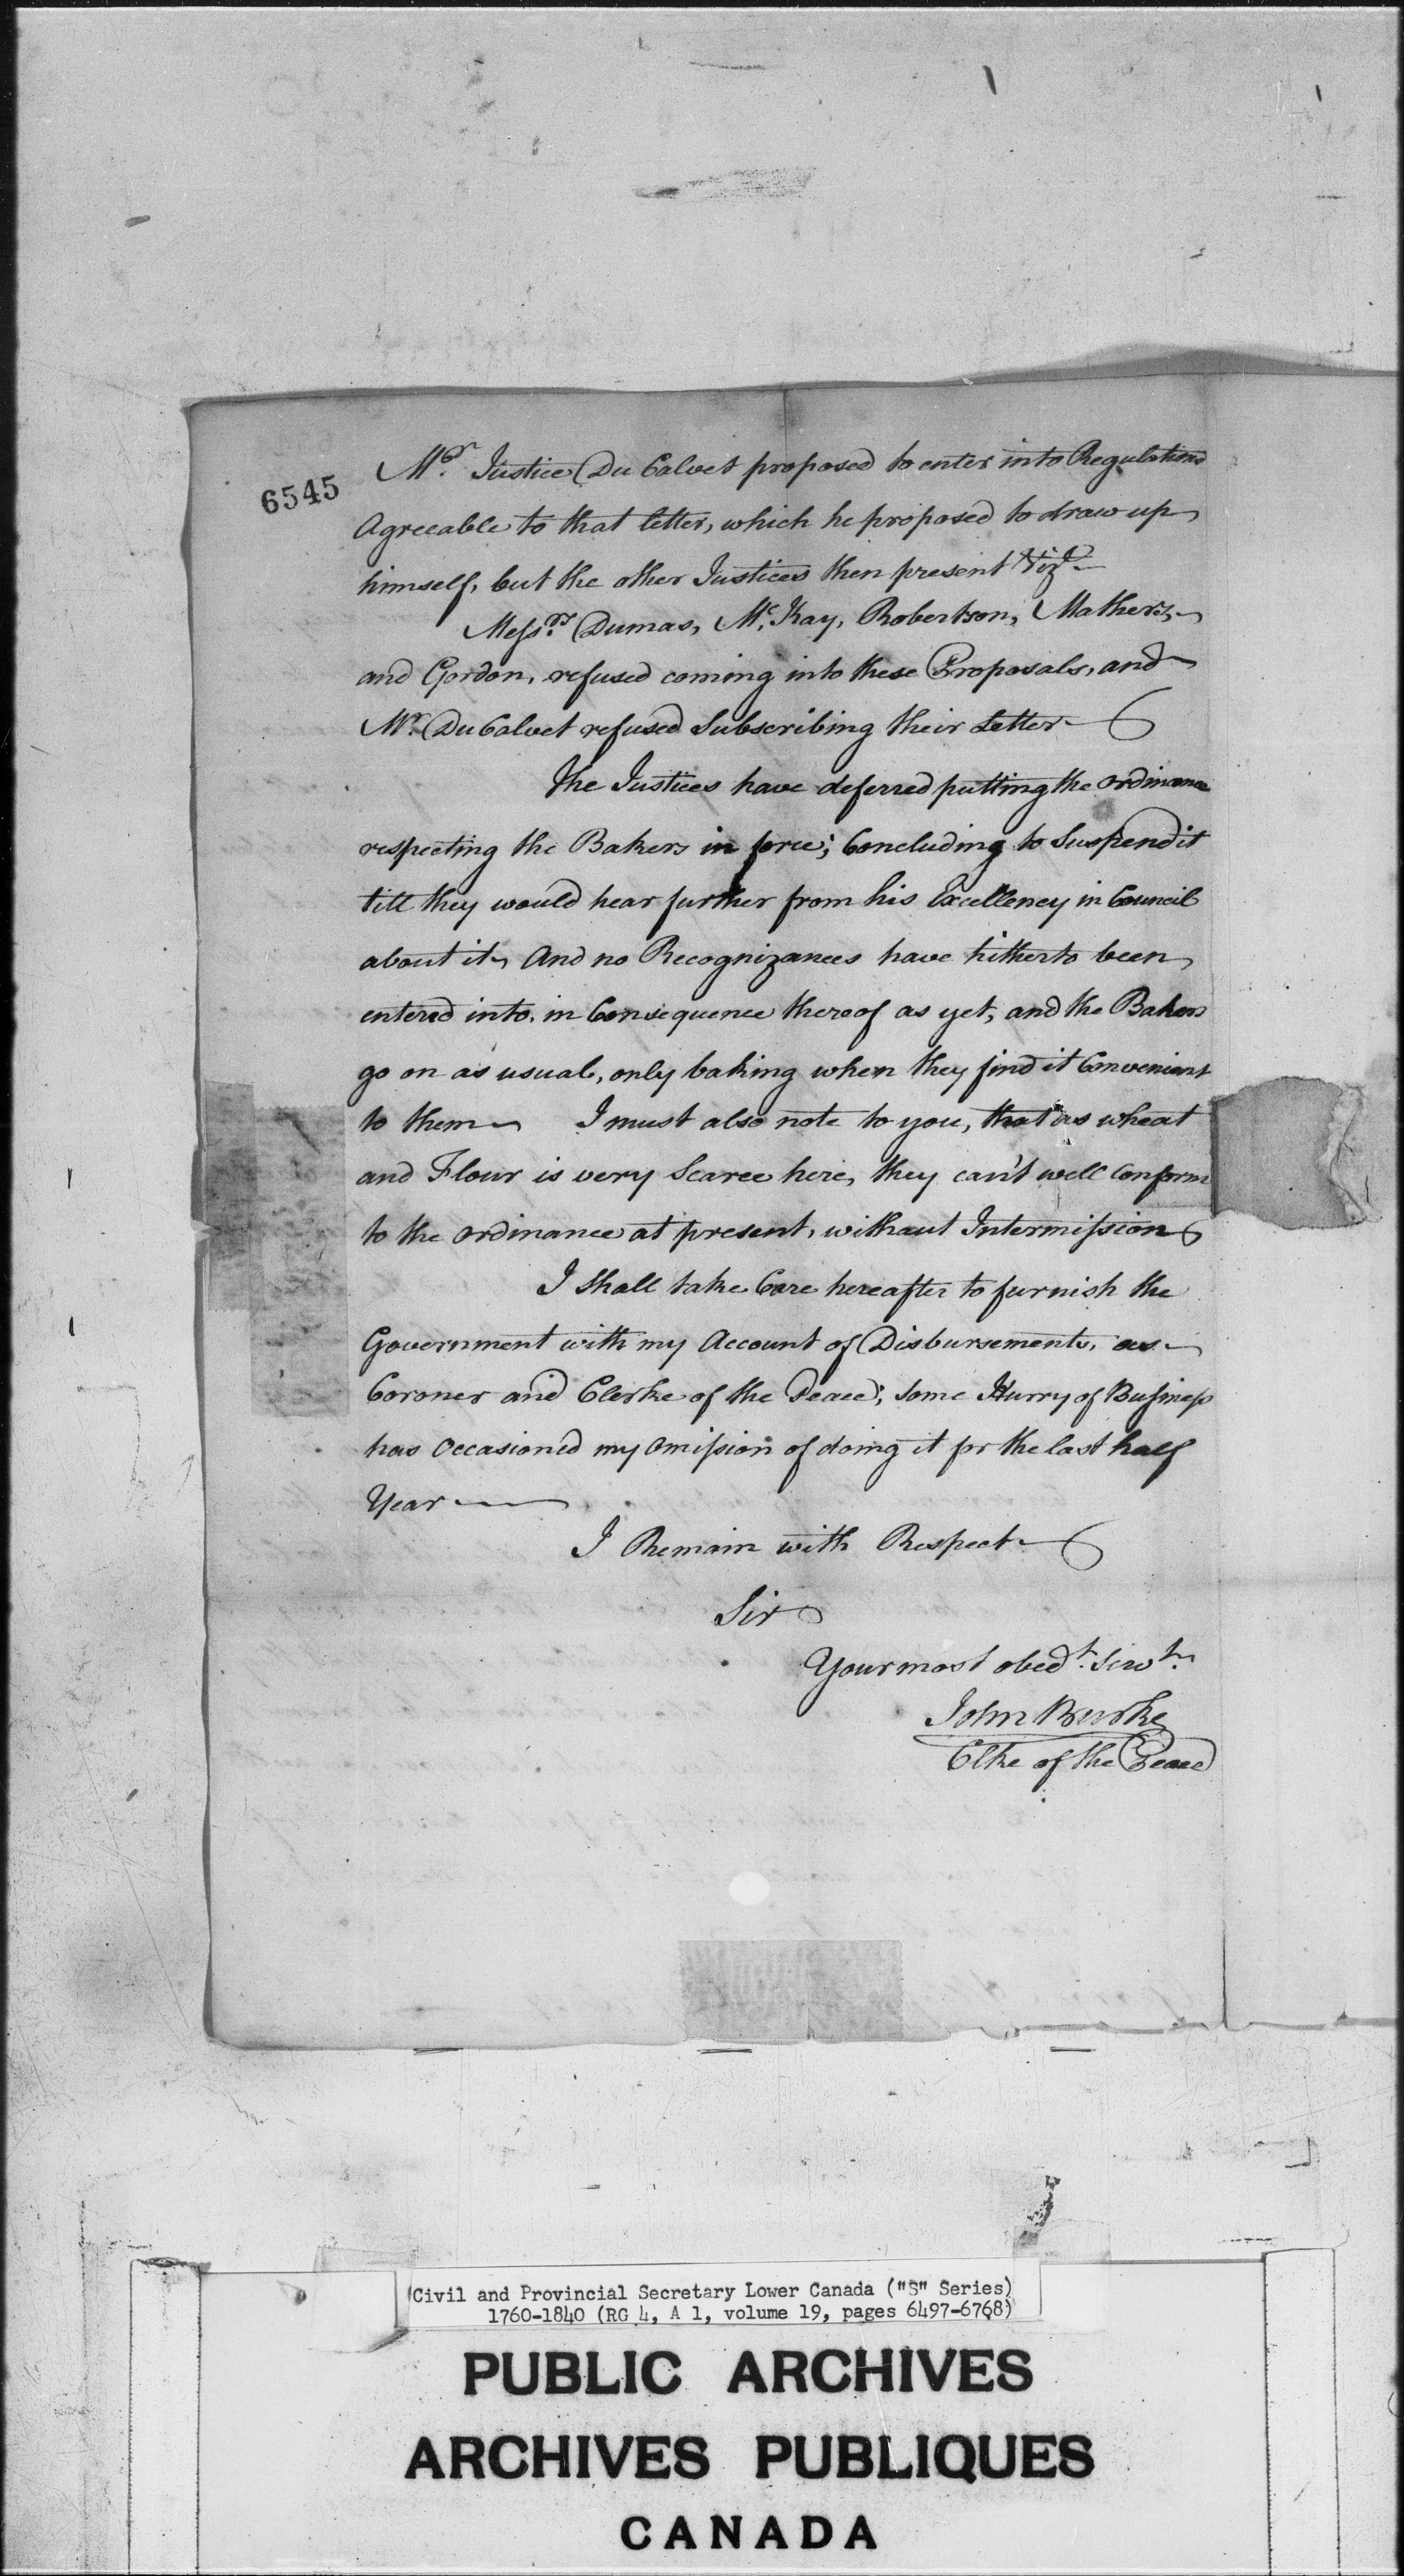 6545
Mr. Justice Du Calvet proposed to enter into Regulations
Agreeable to that letter, which he proposed to draw up
himself, but the other Justices then present Vizt
Messrs. Dumas, Mc.Kay, Robertson, Mathers,
and Gordon, refused coming into these Proposals, and
Mr. Du Calvet refused Subscribing their Letter
The Justices have deferred putting the Ordinance
respecting the Bakers in force; Concluding to Suspend it
till they would hear further from his Excellency in Council
about it, And no Recognizances have hitherto been
entered into, in Consequence thereof as yet, and the Bakers
go on as usual, only baking when they find it Convenient
to them I must also note to you, that as wheat
and Flour is very Scarce here, they can't well Conform
to the Ordinance at present, without Intermission
I Shall take Care hereafter to furnish the
Government with my Account of Disbursements, as
Coroner and Clerke of the Peace; Some Hurry of Business
has Occasioned my Omission of doing it for the last half
Year
I Remain with Respect
Sir
Your most obedt. Servt.
John Burke
Clke of the Peace
Civil and Provincial Secretary Lower Canada ("S" Series)
1760-1840 (RG 4, A 1, volume 19, pages 6497-6768)
PUBLIC ARCHIVES
ARCHIVES PUBLIQUES
CANADA